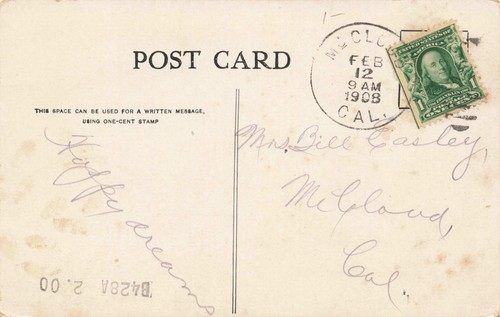 POST CARD
THIS SPACE CAN BE USED FOR A WRITTEN MESSAGE,
USING ONE-CENT STAMP
Happy dreams
B428A 2.00
McCLO
FEB
12
9 AM
1908
CAL.
UNITED STATES OF AMERICA
1
Mrs. Bill Easley,
McCloud,
Cal.